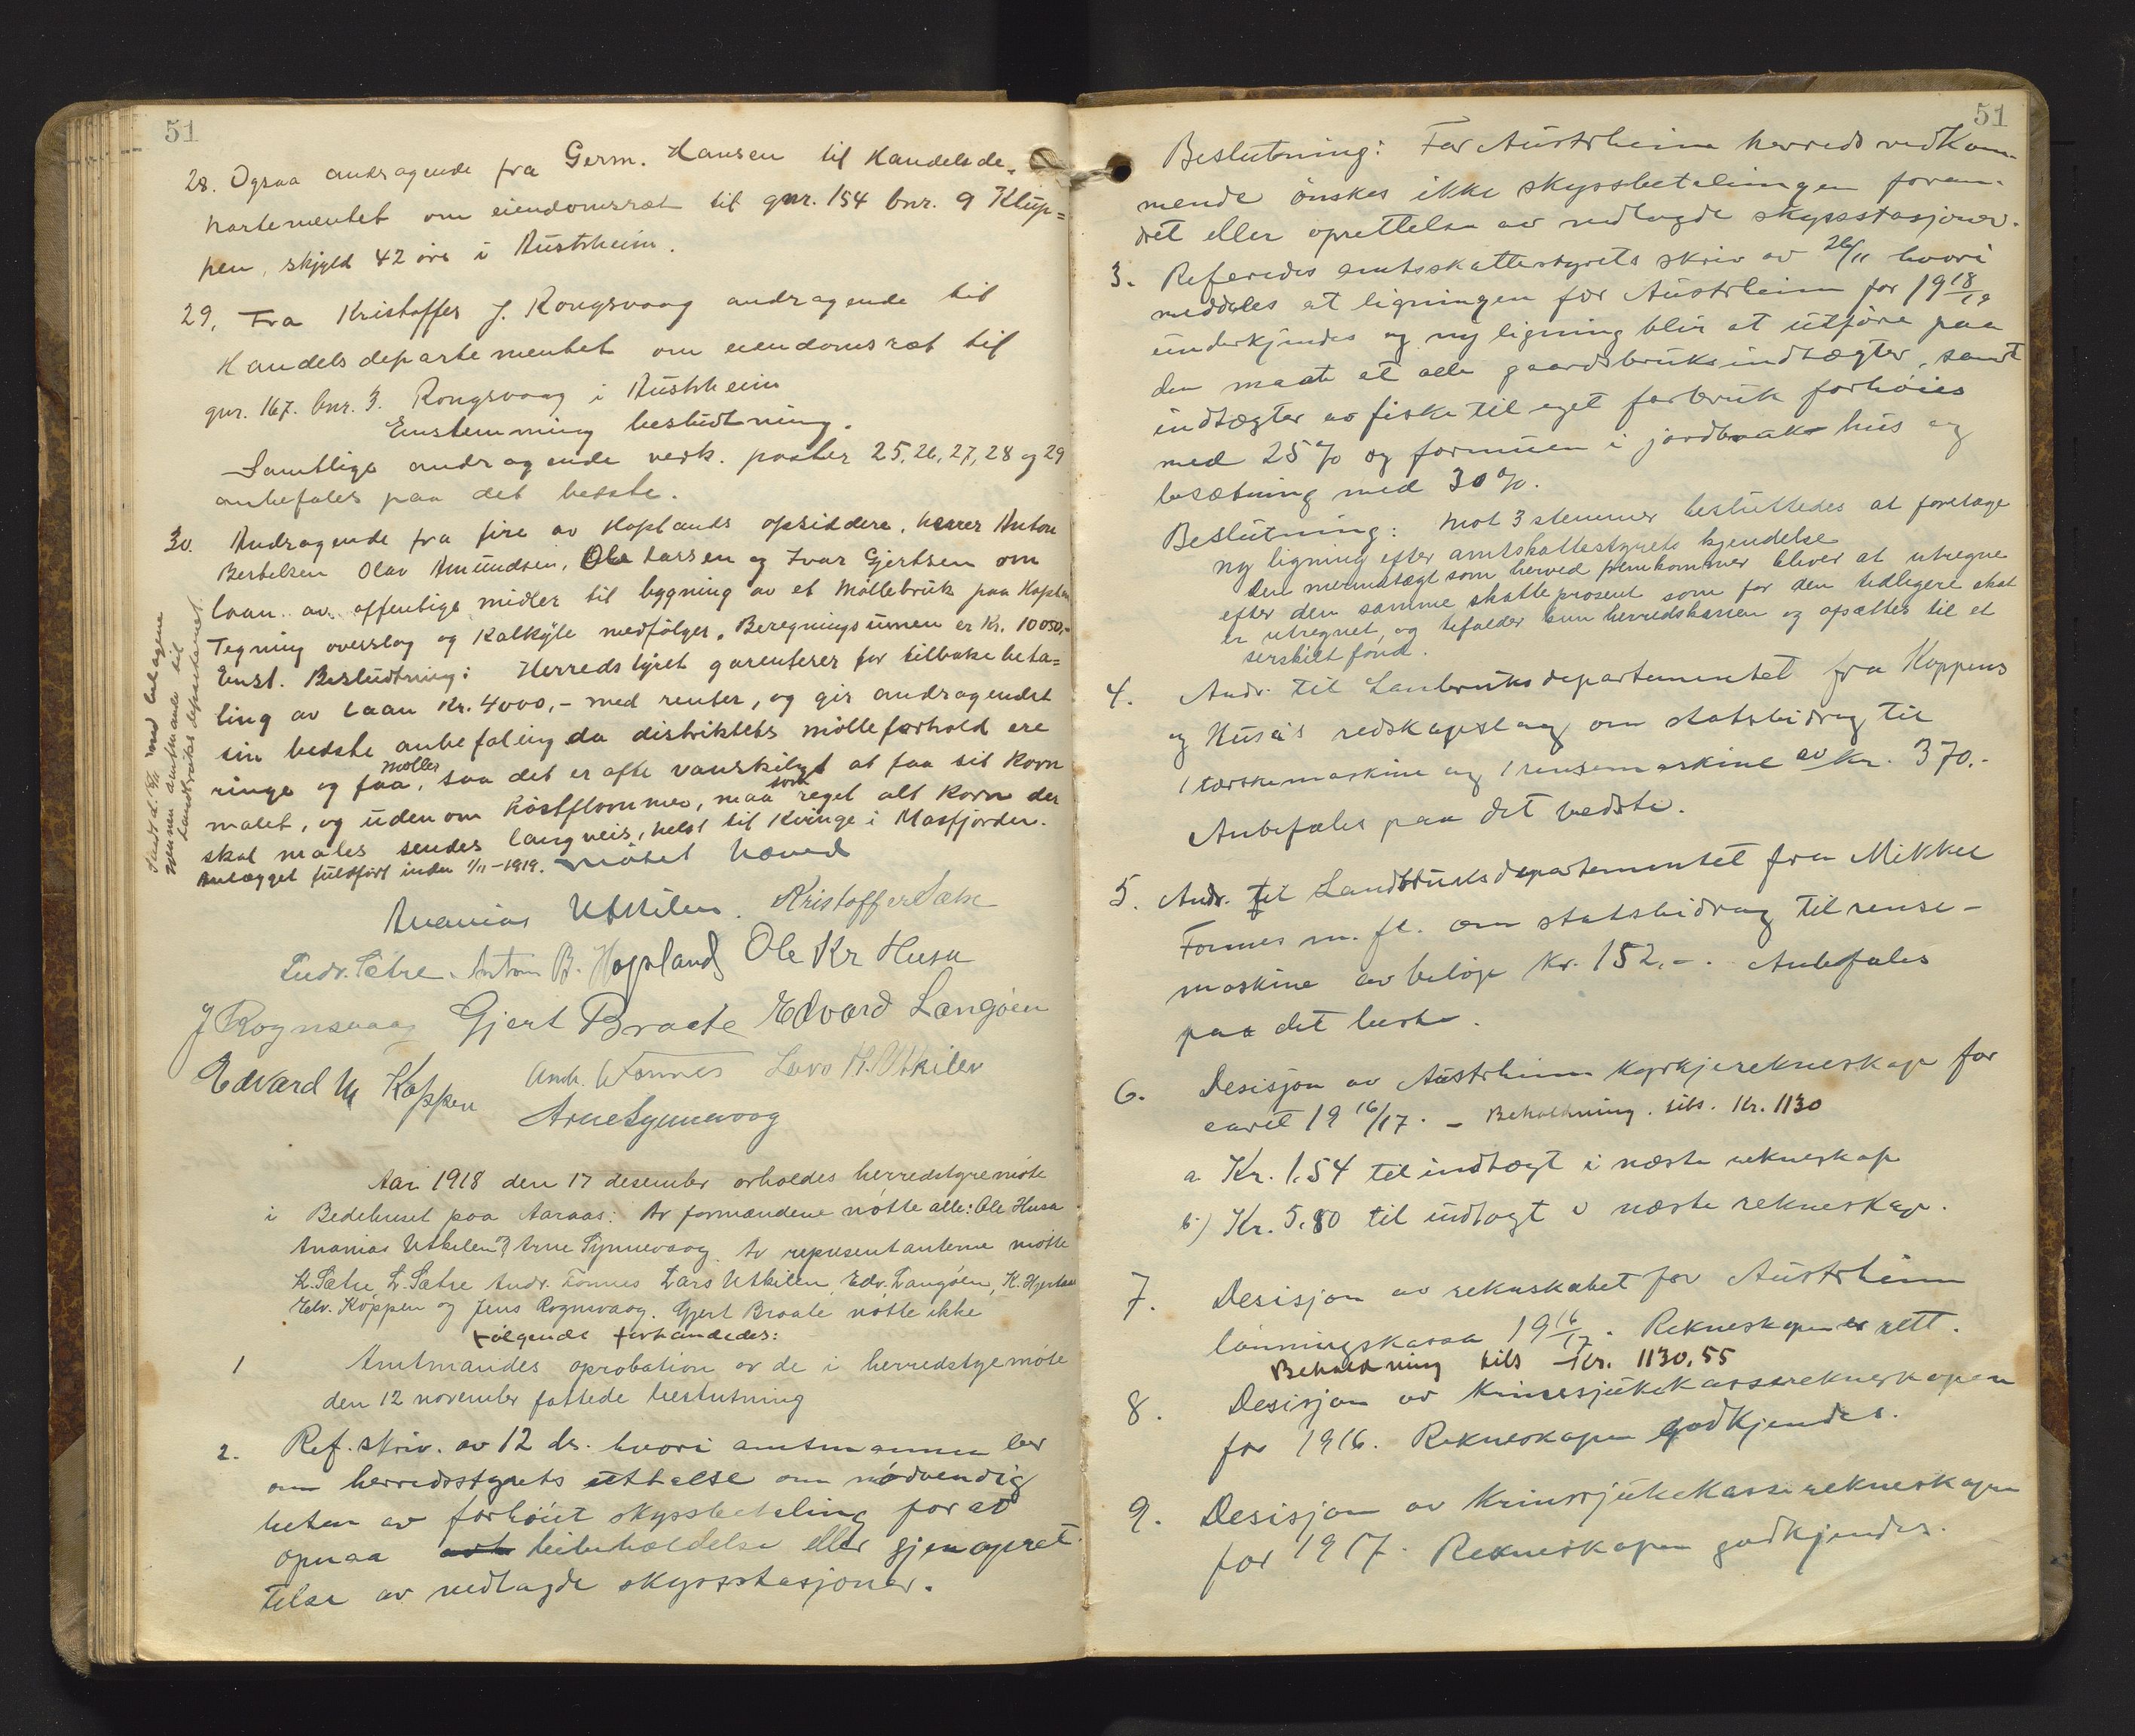 51
28. Ogsaa andragende fra Germ. Hansen til Handelsde-
partementet om eiendomsræt til gnr. 154 bnr. 9 Klup=
pen, skyld 42 øre i Austrheim.
29. Fra Kristoffer J. Rongsvaag andragende til
Handelsdepartementet om eiendomsræt til
gnr. 167. bnr. 3. Rongsvaag i Austrheim
Enstemming beslutning.
Samtlige andragende vedk. poster 25, 26, 27, 28 og 29
anbefales paa det bedste.
30. Andragende fra fire av Hoplands opsiddere, herrer Anton
Bertelsen Olav Amundsen, Ole Larsen og Ivar Gjertsen om
laan av offentlige midler til bygning av et møllebruk paa Hopland
Tegning overslag og Kalkyle medfølger. Beregningssumen er Kr. 10050,-
Enst. Beslutning: Herredstyret garenterer for tilbakebeta=
ling av laan Kr. 4000,- med renter, og gir andragendet
sin bedste anbefaling da distriktets mølleforhold ere
ringe og faa møller, saa det er ofte vanskeligt at faa sit Korn
malet, og uden om høstflommer, maa som regel alt Korn der
skal males sendes langveis, helst til Kvinge i Masfjorden.
Anlægget fuldført inden 1/11-1919. Møtet hæved
Ananias Utkilen. Kristoffer Sætre
Ludv. Sætre. Anton B. Hopland Ole Kr Husa
J Rognsvaag Gjert Braate Edvard Langøen
Edvard M Køppen Andr. Fonnes Lars K. Utkilen
Arne Synnevaag
Aar 1918 den 17 desember avholdes herredstyremøte
i Bedehuset paa Aaraas: Av formændene møtte alle: Ole Husa
Ananias Utkilen og Arne Synnevaag. Av representanterne møtte
K. Sætre, L. Sætre Andr. Fonnes Lars Utkilen, Edv. Langøen, K. Hjertaas
Edv. Køppen og Jens Rognsvaag. Gjert Braate møtte ikke
Følgende forhandledes:
1 Amtmandes aprobation av de i herredstyremøte
den 12 november fattede beslutning
2. Ref. skriv. av 12 ds. hvori amtmannen ber
om herredsstyrets uttalelse om nødvendig
heten av forhøiet skyssbetaling for at
opnaa beibeholdelse eller gjenopret-
telse av nedlagde skyssstasjoner.
51
Beslutning: For Austrheim herreds vedkom-
mende ønskes ikke skyssbetalingen foran-
dret eller oprettelse av nedlagde skyssstasjoner.
3. Referedes amtsskattestyrets skriv av 26/11 hvori
meddeles at ligningen for Austrheim for 1918/19
underkjendes og ny ligning blir at utføre paa
den maate at alle gaardsbruksindtægter, samt
indtægter av fiske til eget forbruk forhøies
med 25% og formuen i jordbruk hus og
besætning med 30%.
Beslutning: Mot 3 stemmer besluttedes at foretage
ny ligning efter amtskattestyrets kjendelse
Den merindtægt som herved fremkommer bliver at utregne
efter den samme skatteprosent som for den tidligere skat
er utregnet, og tilfalder kun herredskassen og opsættes til et
serskilt fond.
4. Andr. til Lanbruksdepartementet fra Køppens
og Husa's redskapslag om statsbidrag til
1 tærskemaskine og 1 rensemaskine av kr. 370.-
Anbefales paa det bedste.
5. Andr. til Landbruksdepartementet fra Mikkel
Fonnes m. fl. om statsbidrag til rense-
maskine av beløp Kr. 152.-. Anbefales
paa det beste.
6. Desisjon av Austrheim kyrkjerekneskap for
aaret 1916/17. - Beholdning. tils. Kr. 1130
a Kr. 1.54 til indtægt i næste rekneskap
b.) Kr. 5,80 til indtægt i næste rekneskap.
7. Desisjon av rekneskabet for Austrheim
lønningskassa 1916/17. Rekneskapen er rett.
Beholdning tils - Kr. 1130,55
8. Desisjon av Krinssjukekasserekneskapen
for 1916. Rekneskapen godkjendes.
9. Desisjon av Krinssjukekasserekneskapen
for 1917. Rekneskapen godkjendes.